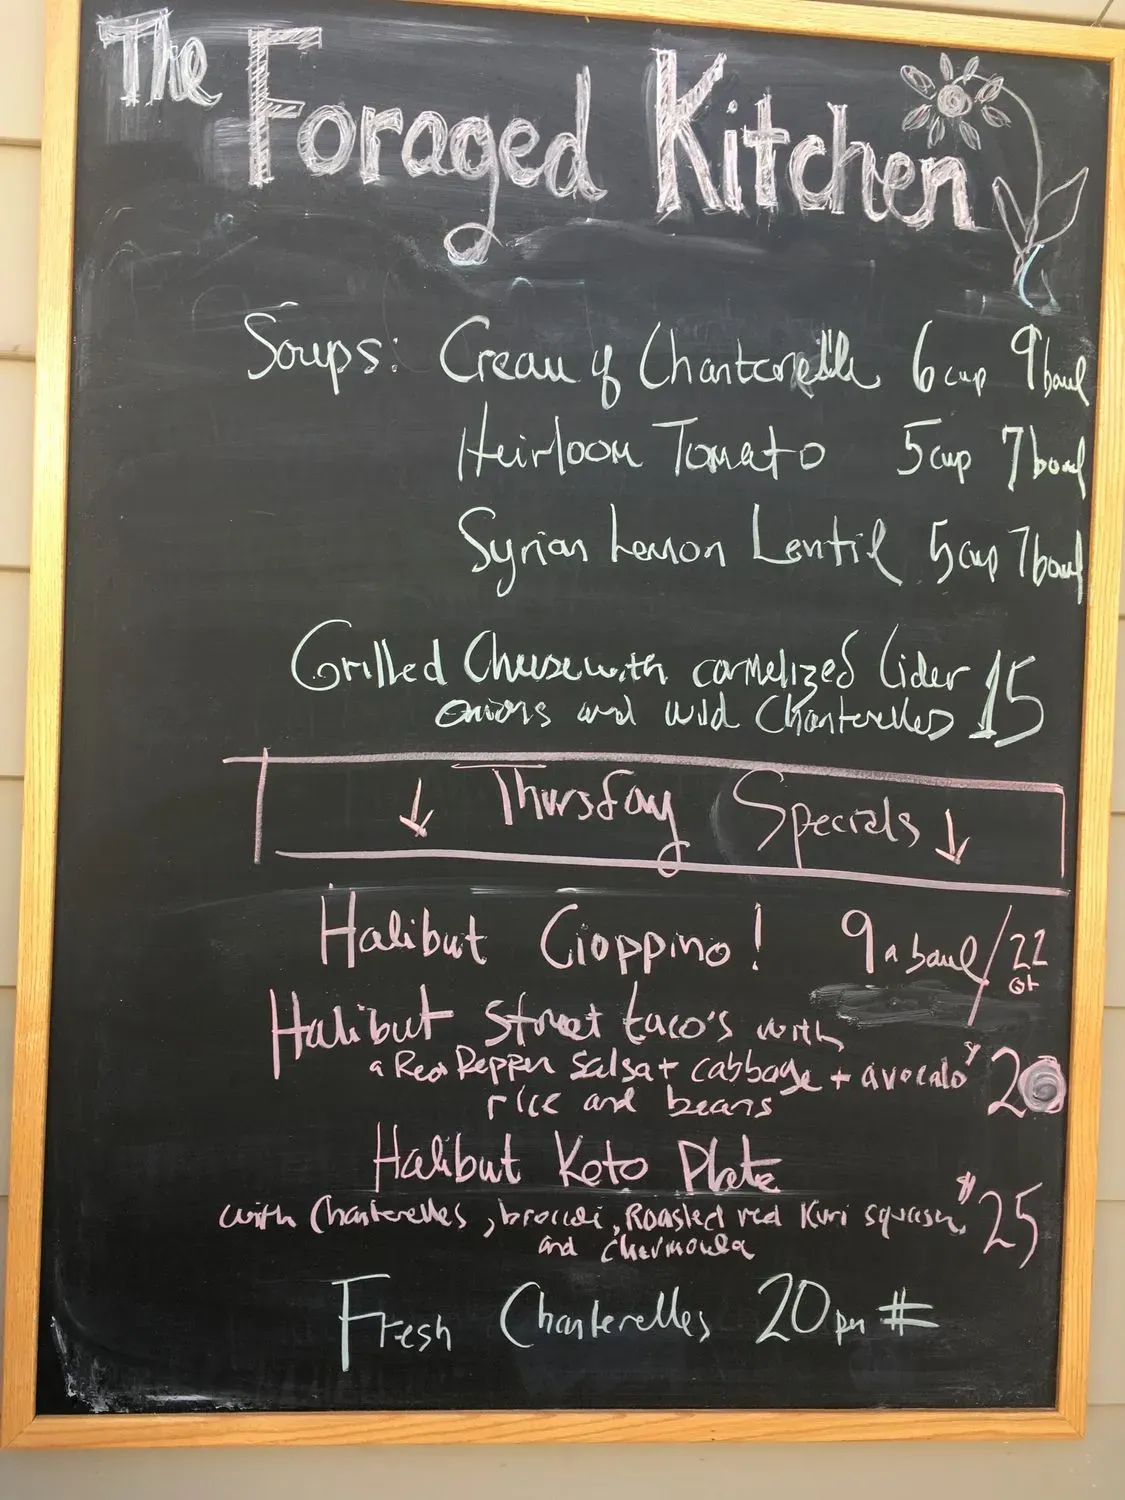 The Foraged Kitchen
Soups: Cream of Chanterelle 6 cup 9 bowl
Heirloom Tomato 5 cup 7 bowl
Syrian Lemon Lentil 5 cup 7 bowl
Grilled Cheese with carmelized Cider 15
onions and wild Chanterelles
↓ Thursday Specials ↓
Halibut Cioppino! 9 a bowl / 22 qt
Halibut Street taco's with
a Red Pepper Salsa + cabbage + avocado $20
rice and beans
Halibut Keto Plate
with Chanterelles, broccoli, Roasted red Kuri squash, $25
and chermoula
Fresh Chanterelles 20 per #